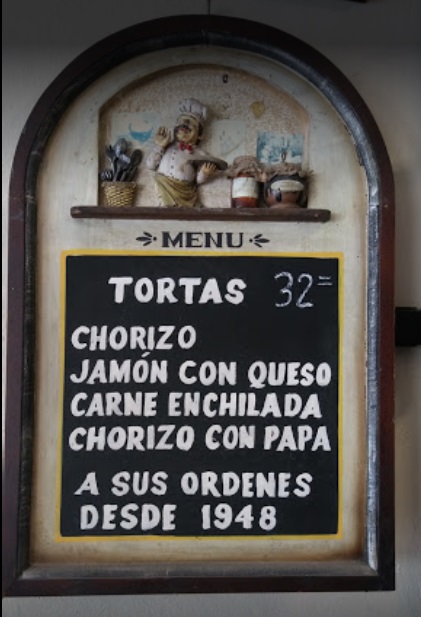 MENU
TORTAS 32=
CHORIZO
JAMÓN CON QUESO
CARNE ENCHILADA
CHORIZO CON PAPA
A SUS ORDENES
DESDE 1948